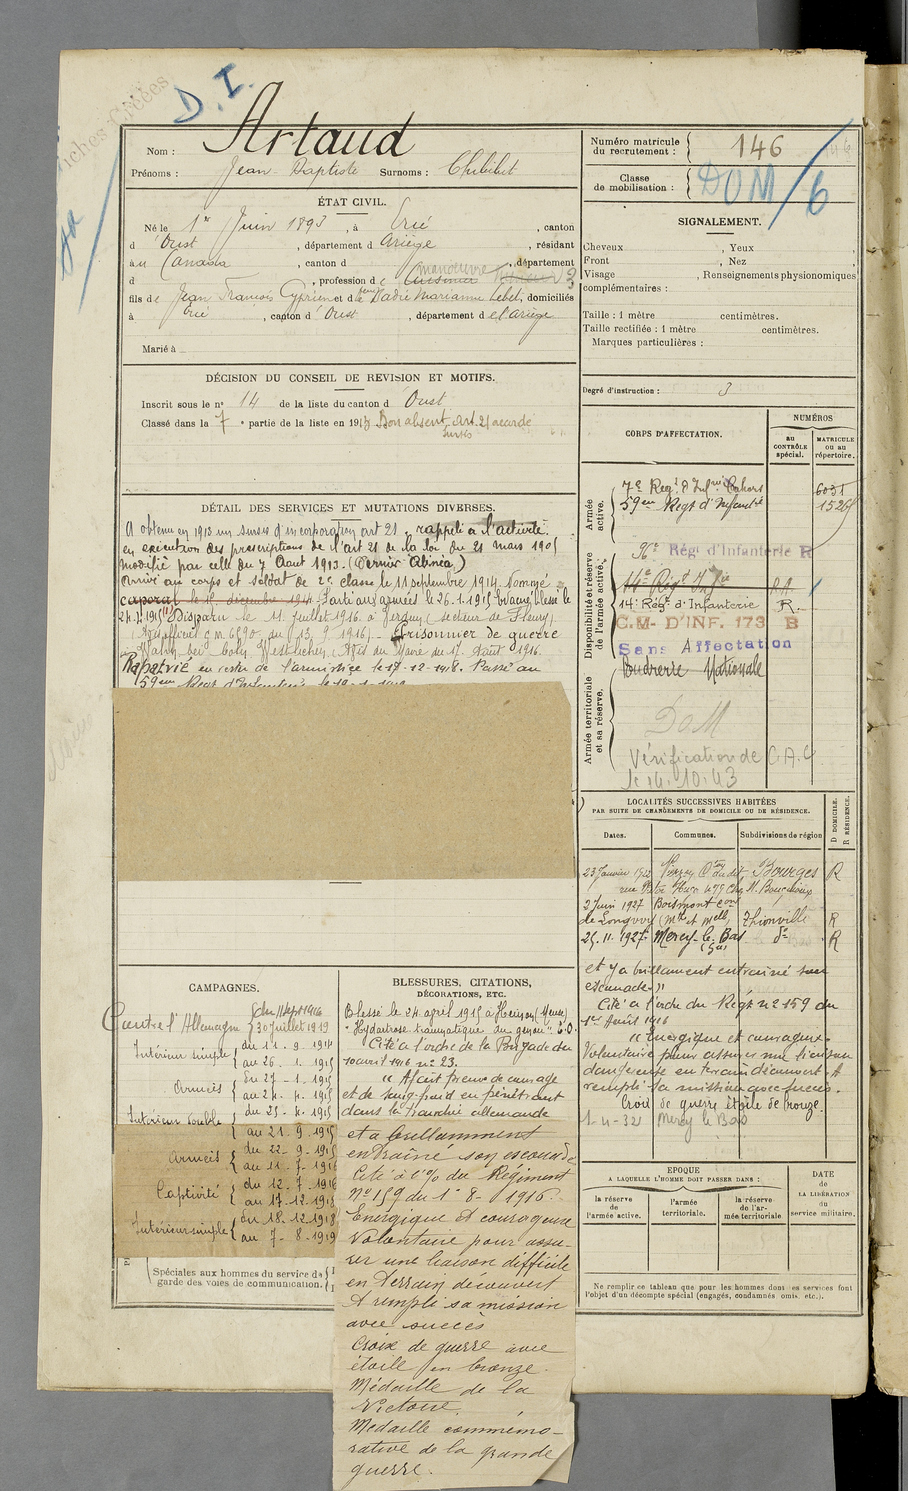 D. I.
Fiches Créées
Artaud
Nom :
Prénoms : Jean-Baptiste Surnoms : Chibilut
ÉTAT CIVIL.
Né le 1er Juin 1893, à Ercé, canton
d'Oust, département d Ariège, résidant
à u Canada, canton d , département
d , profession d manoeuvre
fils de Jean François Cyprien et de feue Marianne Lebel, domiciliés
à Ercé, canton d'Oust, département d e l'Ariège
Marié à
DÉCISION DU CONSEIL DE REVISION ET MOTIFS.
Inscrit sous le n° 14 de la liste du canton d' Oust
Classé dans la 7e partie de la liste en 1913 Bon absent art. 21 accordé
sursis
DÉTAIL DES SERVICES ET MUTATIONS DIVERSES.
A obtenu en 1913 un sursis d'incorporation art 21. rappelé à l'activité
en exécution des prescriptions de l'art 21 de la loi du 21 mars 1905
modifié par celle du 7 Aout 1913. (Dernier Alinéa)
Arrivé au corps et soldat de 2e classe le 11 septembre 1914. Nommé
caporal le 16 décembre 1914. Parti aux armées le 26.1.1915 blessé le
24.4.1915 Disparu le 11 Juillet 1916 à (secteur de Fleury)
du 13.9.1916) - Prisonnier de guerre
du Maire du 17. Août 1916.
Rapatrié en vertu de l'armistice le 17-12-1918. Passé au
59ème Régt d'Infanterie le
CAMPAGNES.
Contre l'Allemagne du 11 sept 1916
30 juillet 1919
Intérieur simple du 11. 9. 1914
au 26. 1. 1915
Armées du 27 - 1. 1915
au 24. 4. 1915
Intérieur double du 25. 4. 1915
au 21. 9. 1915
Armées du 22. 9. 1915
au 11. 7. 1916
Captivité du 12. 7. 1916
au 17. 12. 1918
Intérieur simple du 18. 12. 1918
au 7. 8. 1919
Spéciales aux hommes du service de
garde des voies de communication.
BLESSURES, CITATIONS,
DÉCORATIONS, ETC.
Blessé le 24 avril 1915 à (Meuse)
"Hydartrose traumatique du genou" E.O.
Cité à l'ordre de la Brigade du
10 avril 1916 n° 23.
"A fait preuve de courage
et de sang-froid en pénétrant
dans la tranchée allemande
et a brillamment
entrainé son escouade
Cité à l'O/ du Régiment
N° 159 du 1-8-1916.
Energique et courageux
Volontaire pour assu-
rer une liaison difficile
en terrain découvert
A rempli sa mission
avec succès
Croix de guerre avec
étoile en bronze.
Médaille de la
Victoire.
Médaille commémo-
rative de la grande
guerre.
Numéro matricule
du recrutement : 146
Classe
de mobilisation : DOM/6
SIGNALEMENT.
Cheveux , Yeux ,
Front , Nez ,
Visage , Renseignements physionomiques
complémentaires :
Taille : 1 mètre centimètres.
Taille rectifiée : 1 mètre centimètres.
Marques particulières :
Degré d'instruction : 3
CORPS D'AFFECTATION.
NUMÉROS
au
CONTRÔLE
spécial.
MATRICULE
ou au
répertoire.
Armée
active.
7e Régt d'Infrie Cahors 6031
59em Régt d'Infantrie
Disponibilité et réserve
de l'armée active.
96e Régt d'Infanterie R
14e Régt Infie R.A.
14e Régt d'Infanterie R.
C.M. D'INF. 173 B
Sans Affectation
Armée territoriale
et sa réserve.
Poudrerie Nationale
DOM
Vérification de C.A.C
le 14.10.43
LOCALITÉS SUCCESSIVES HABITÉES
PAR SUITE DE CHANGEMENTS DE DOMICILE OU DE RÉSIDENCE.
Dates.
Communes.
Subdivisions de région
D DOMICILE.
R RÉSIDENCE.
23 Janvier 1922 Bourges R
2 Juin 1927 Boismont con
de Longwy (Mthe et Mlle) Thionville R
25.11.1927 Mercy-le-Bas d° R
et y a brillament entrainé son
escouade."
Cité à l'ordre du Régt n° 159 du
1er Août 1916
"Energique et courageux.
Volontaire pour assurer une liaison
dangereuse en terrain découvert. A
rempli sa mission avec succès.
Croix de guerre étoile de bronze.
1-4-32 Mercy le Bas
EPOQUE
A LAQUELLE L'HOMME DOIT PASSER DANS :
la réserve
de l'armée active.
l'armée
territoriale.
la réserve
de l'ar-
mée territoriale
DATE
de la
LIBÉRATION
du
service militaire.
Ne remplir ce tableau que pour les hommes dont les services font
l'objet d'un décompte spécial (engagés, condamnés omis, etc.).